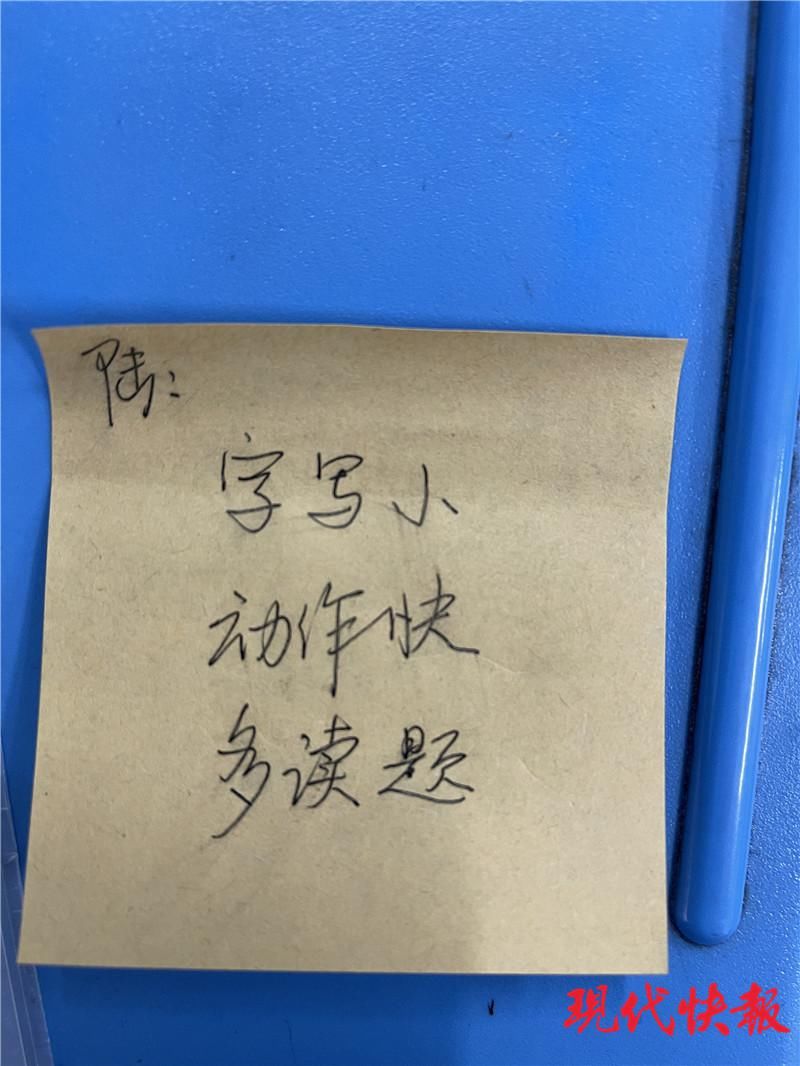 陆：
字写小
动作快
多读题
现代快報